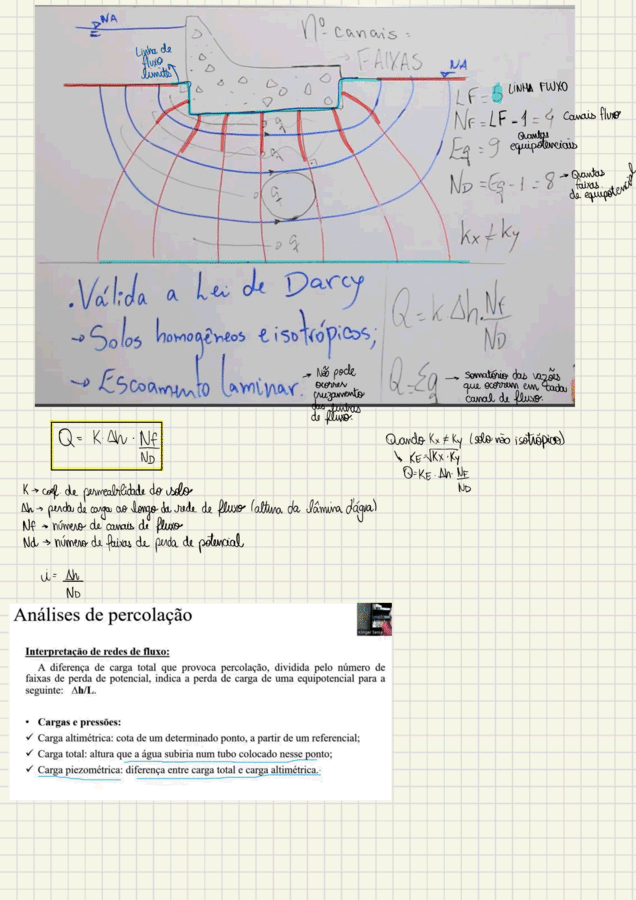 NA
Nº canais =
→ FAIXAS
Linha de
fluxo
limite
NA
LF = 5 LINHA FLUXO
NF = LF - 1 = 4 Canais fluxo
Eq = 9 Quantas equipotenciais
ND = Eq - 1 = 8 → Quantas faixas de equipotencial
kx ≠ ky
q
q
q
q
. Válida a Lei de Darcy
→ Solos homogêneos e isotrópicos;
→ Escoamento laminar.
→ Não pode
ocorrer
cruzamento
das linhas
de fluxo.
Q = K.Δh.Nf/ND
Q = Σq → somatório das vazões
que ocorrem em cada
canal de fluxo.
Q = K · Δh · Nf/ND
Quando Kx ≠ Ky (solo não isotrópico)
↳ KE = √Kx · Ky
Q = KE · Δh · NF/ND
K → coef. de permeabilidade do solo
Δh → perda de carga ao longo da rede de fluxo (altura da lâmina d'água)
Nf → número de canais de fluxo
Nd → número de faixas de perda de potencial
i = Δh/ND
Análises de percolação
Interpretação de redes de fluxo:
A diferença de carga total que provoca percolação, dividida pelo número de
faixas de perda de potencial, indica a perda de carga de uma equipotencial para a
seguinte: Δh/L.
• Cargas e pressões:
✓ Carga altimétrica: cota de um determinado ponto, a partir de um referencial;
✓ Carga total: altura que a água subiria num tubo colocado nesse ponto;
✓ Carga piezométrica: diferença entre carga total e carga altimétrica.